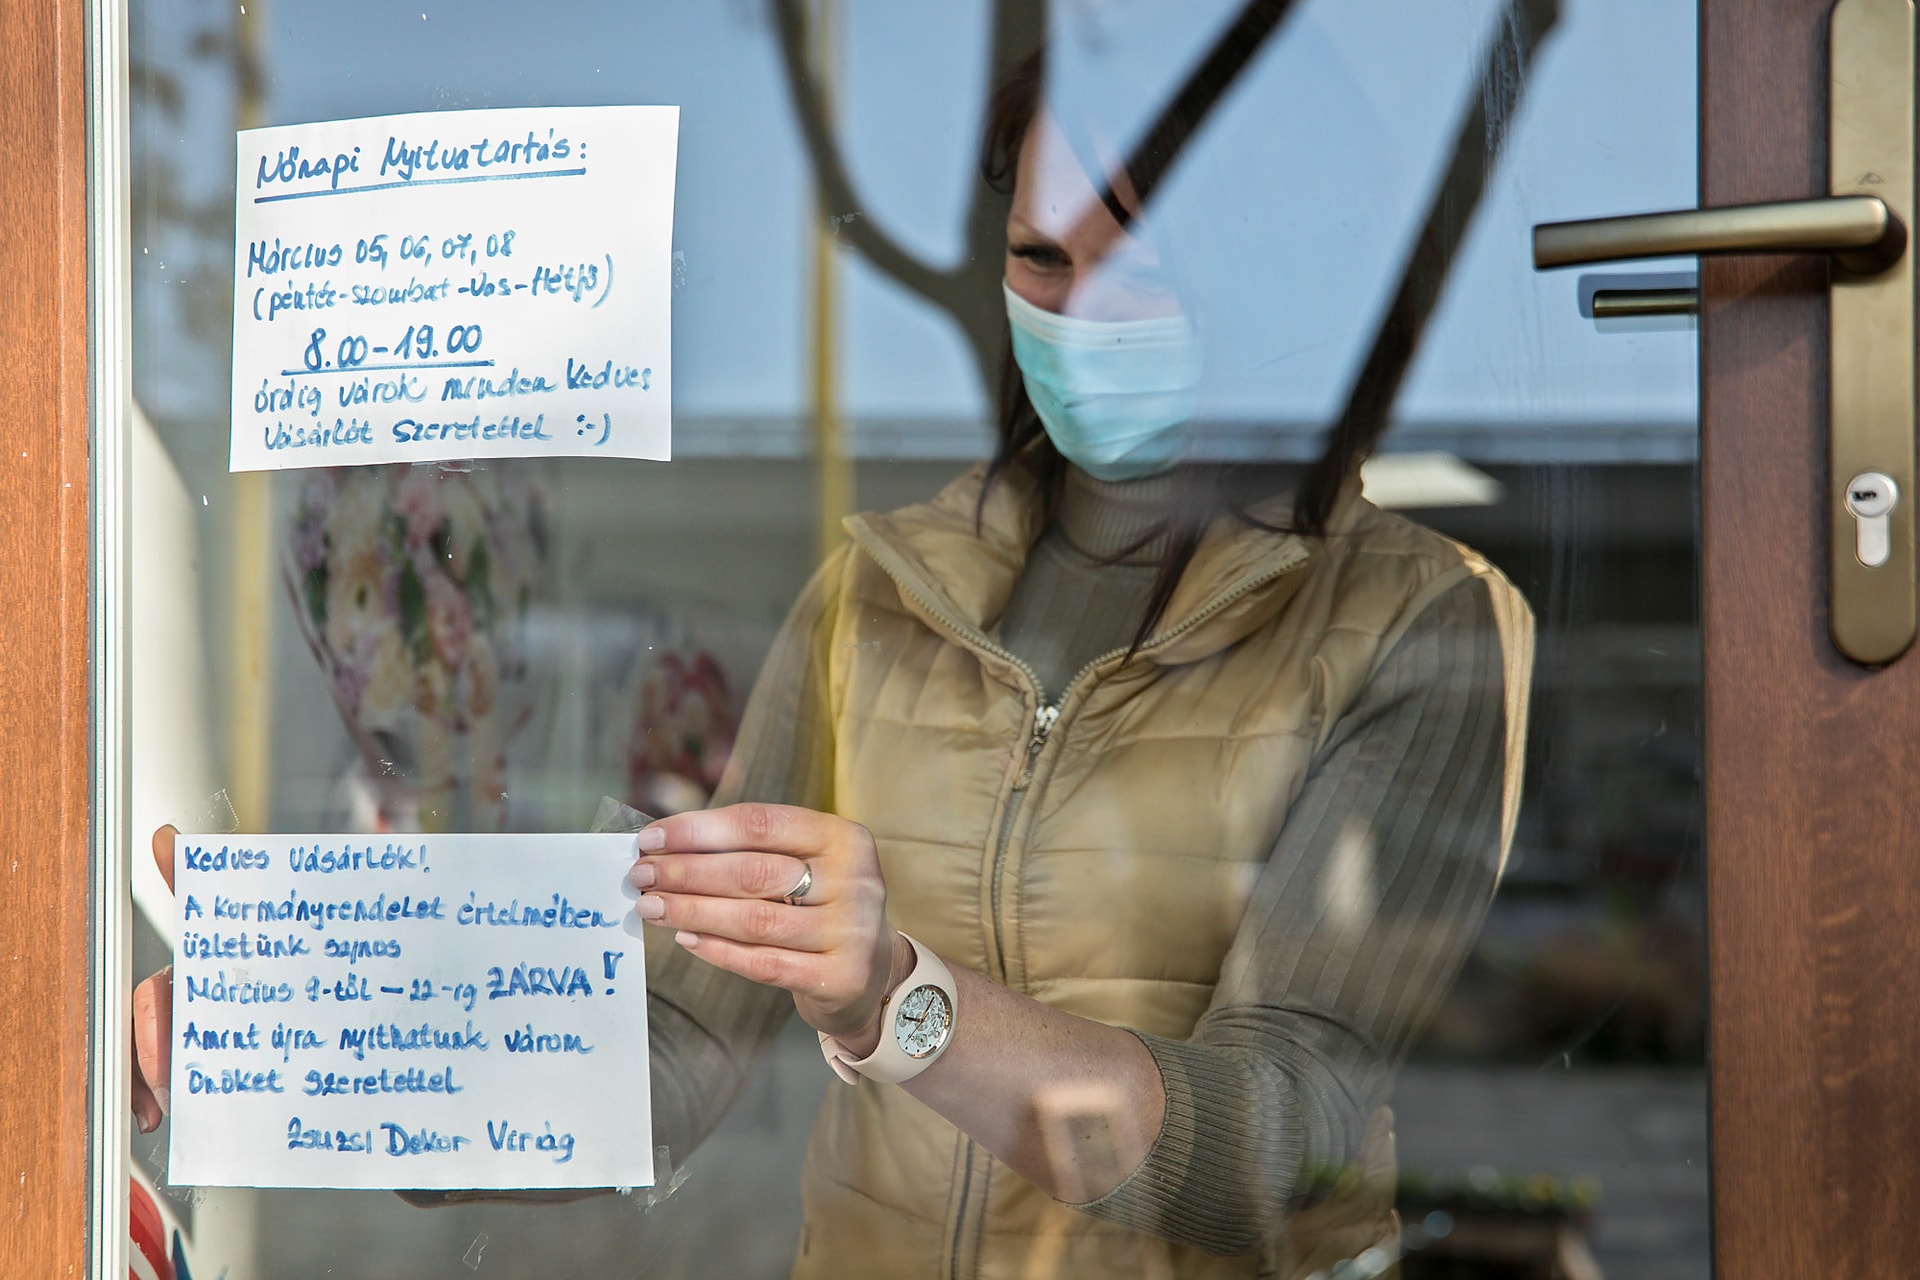 Nőnapi Nyitvatartás:
Március 05, 06, 07, 08
(péntek-szombat-Vas-Hétfő)
8.00-19.00
óráig várok minden kedves
Vásárlót szeretettel :-)
Kedves Vásárlók!
A kormányrendelet értelmében
üzletünk sajnos
Március 9-től - 22-ig ZÁRVA!
Amint újra nyithatunk várom
Önöket szeretettel
Zsuzsi Dekor Virág